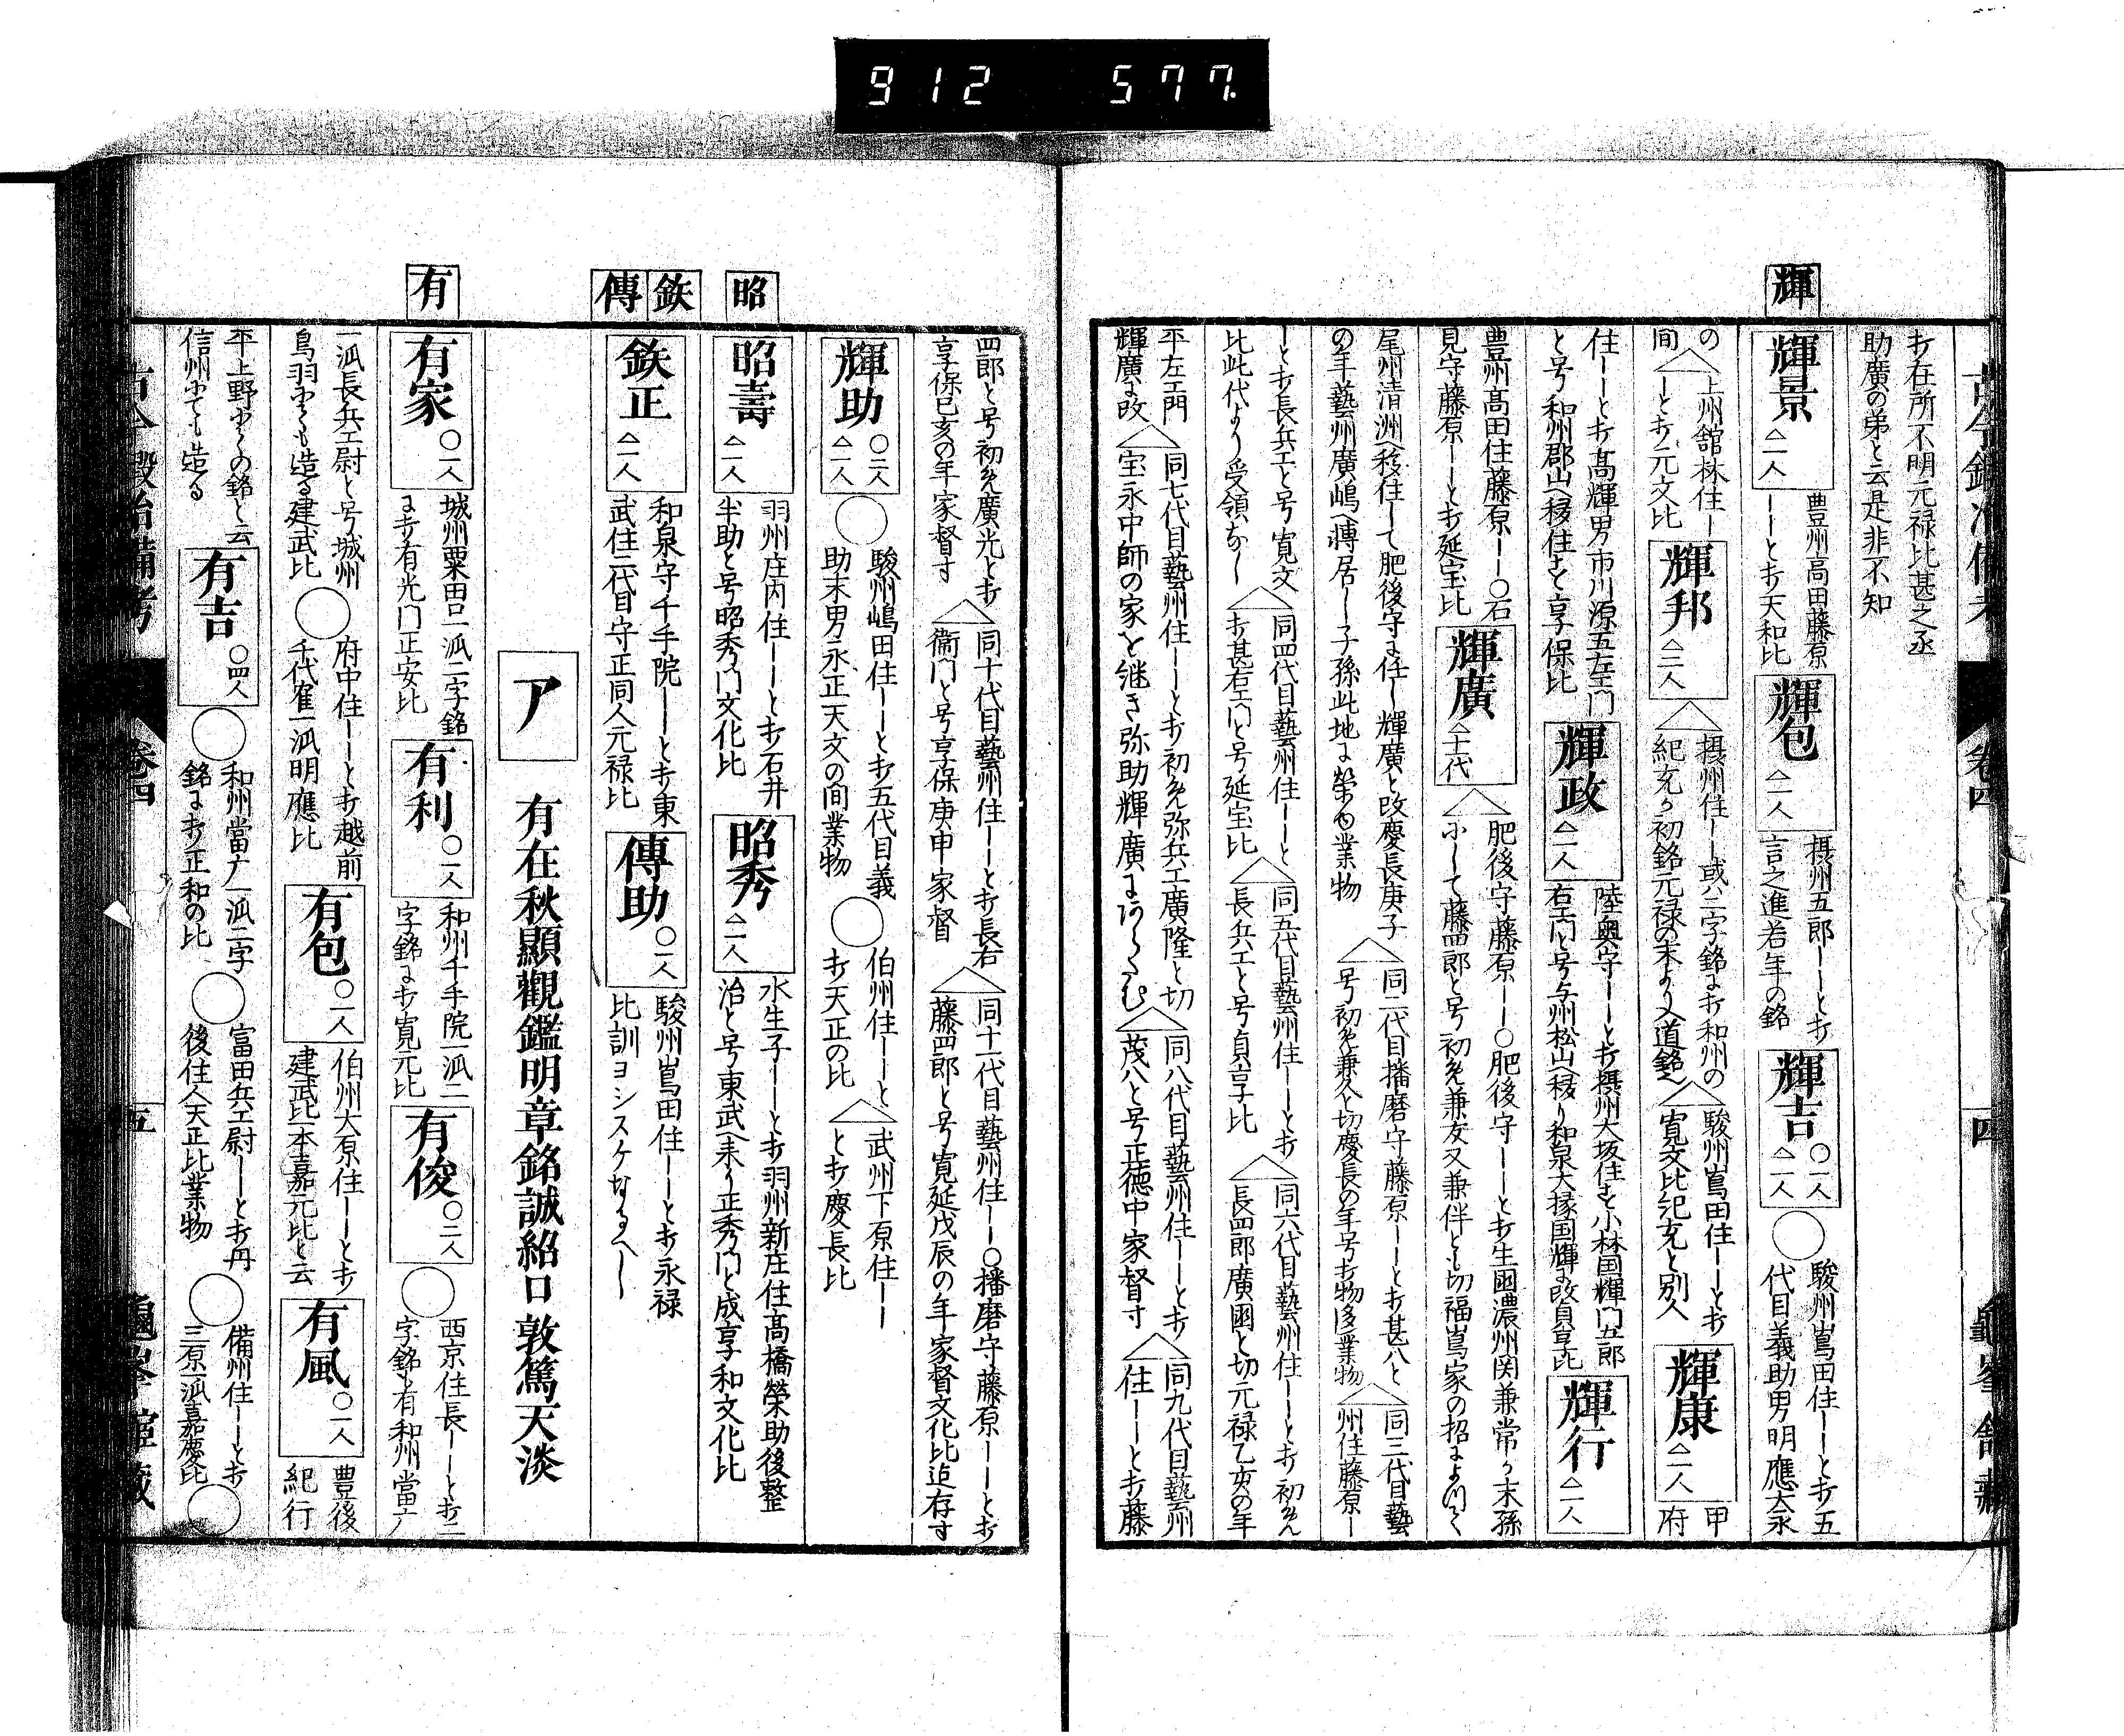 912 577
輝
古今鍛冶備考 卷四 四 龜峯舘藏
打在所不明元禄比甚之丞
助廣の弟と云是非不知
輝景 △一人
豊州高田藤原
ーーと打天和比
輝包 △一人
摂州五郎ーーと打
言之進若年の銘
輝吉 ○一人 △一人
○駿州嶌田住ーーと打五
代目義助男明應大永
の間
△上州舘林住ー
ーと打元文比
輝邦 △二人
△摂州住ーー或ハ二字銘に打和州の
紀充か初銘元禄の末より入道銘
△駿州嶌田住ーーと打
寛文比紀充と別人
輝康 △一人
甲府
住ーーと打髙輝男市川源五左エ門
と号和州郡山へ移住すと享保比
輝政 △一人
陸奥守ーーと打摂州大坂住すと小林国輝門五郎
右エ門と号与州松山へ移り和泉大掾国輝に改貞享比
輝行 △一人
豊州髙田住藤原ーー○石
見守藤原ーーと打延宝比
輝廣 △十代
△肥後守藤原ーー○肥後守ーーと打生國濃州関兼常か末孫
尾州清洲へ移住して肥後守に任し輝廣と改慶長庚子
の年藝州廣嶋へ轉居し子孫此地に榮ゆ業物
△同二代目播磨守藤原ーーと打甚八と
号初め兼久と切慶長の年号打物多業物
△同三代目藝
州住藤原ー
ーと打長兵エと号寛文
比此代より受領なし
△同四代目藝州住ーーと
打甚右エ門と号延宝比
△同五代目藝州住ーーと打
長兵エと号貞享比
△同六代目藝州住ーーと打初めハ
長四郎廣國と切元禄乙亥の年
平左エ門
輝廣に改
△同七代目藝州住ーーと打初め弥兵エ廣隆と切
宝永中師の家を継き弥助輝廣にあらたむ
△同八代目藝州住ーーと打
茂八と号正徳中家督す
△同九代目藝州
住ーーと打藤
昭
鉄
傳
有
四郎と号初め廣光と打
享保己亥の年家督す
△同十代目藝州住ーーと打長右
衞門と号享保庚申家督
△同十一代目藝州住ーー○播磨守藤原ーーと打
藤四郎と号寛延戊辰の年家督文化比迠存す
輝助 ○二人 △一人
○駿州嶋田住ーーと打五代目義
助末男永正天文の間業物
○伯州住ーーと
打天正の比
△武州下原住ーー
と打慶長比
昭壽 △一人
羽州庄内住ーーと打石井
半助と号昭秀門文化比
昭秀 △一人
水生子ーーと打羽州新庄住髙橋榮助後整
治と号東武へ来り正秀門と成享和文化比
鉄正 △一人
和泉守千手院ーーと打東
武住二代目守正同人元禄比
傳助 ○一人
駿州嶌田住ーーと打永禄
比訓ヨシスケなるへし
ア 有在秋顯觀鑑明章銘誠紹口敦篤天淡
有家 ○一人
城州粟田口一派二字銘
に打有光門正安比
有利 ○一人
和州千手院一派二
字銘に打寛元比
有俊 ○二人
○西京住長ーーと打二
字銘も有和州當广
一派長兵エ尉と号城州
鳥羽にても造る建武比
○府中住ーーと打越前
千代隺一派明應比
有包 ○一人
伯州大原住ーーと打
建武比一本嘉元比と云
有風 ○一人
豊後
紀行
平上野にての銘と云
信州にても造る
有吉 ○四人
○和州當广一派二字
銘に打正和の比
○富田兵エ尉ーーと打丹
後住人天正比業物
○備州住ーーと打
三原一派嘉慶比
○
古今鍛冶備考 卷四 五 龜峯舘藏